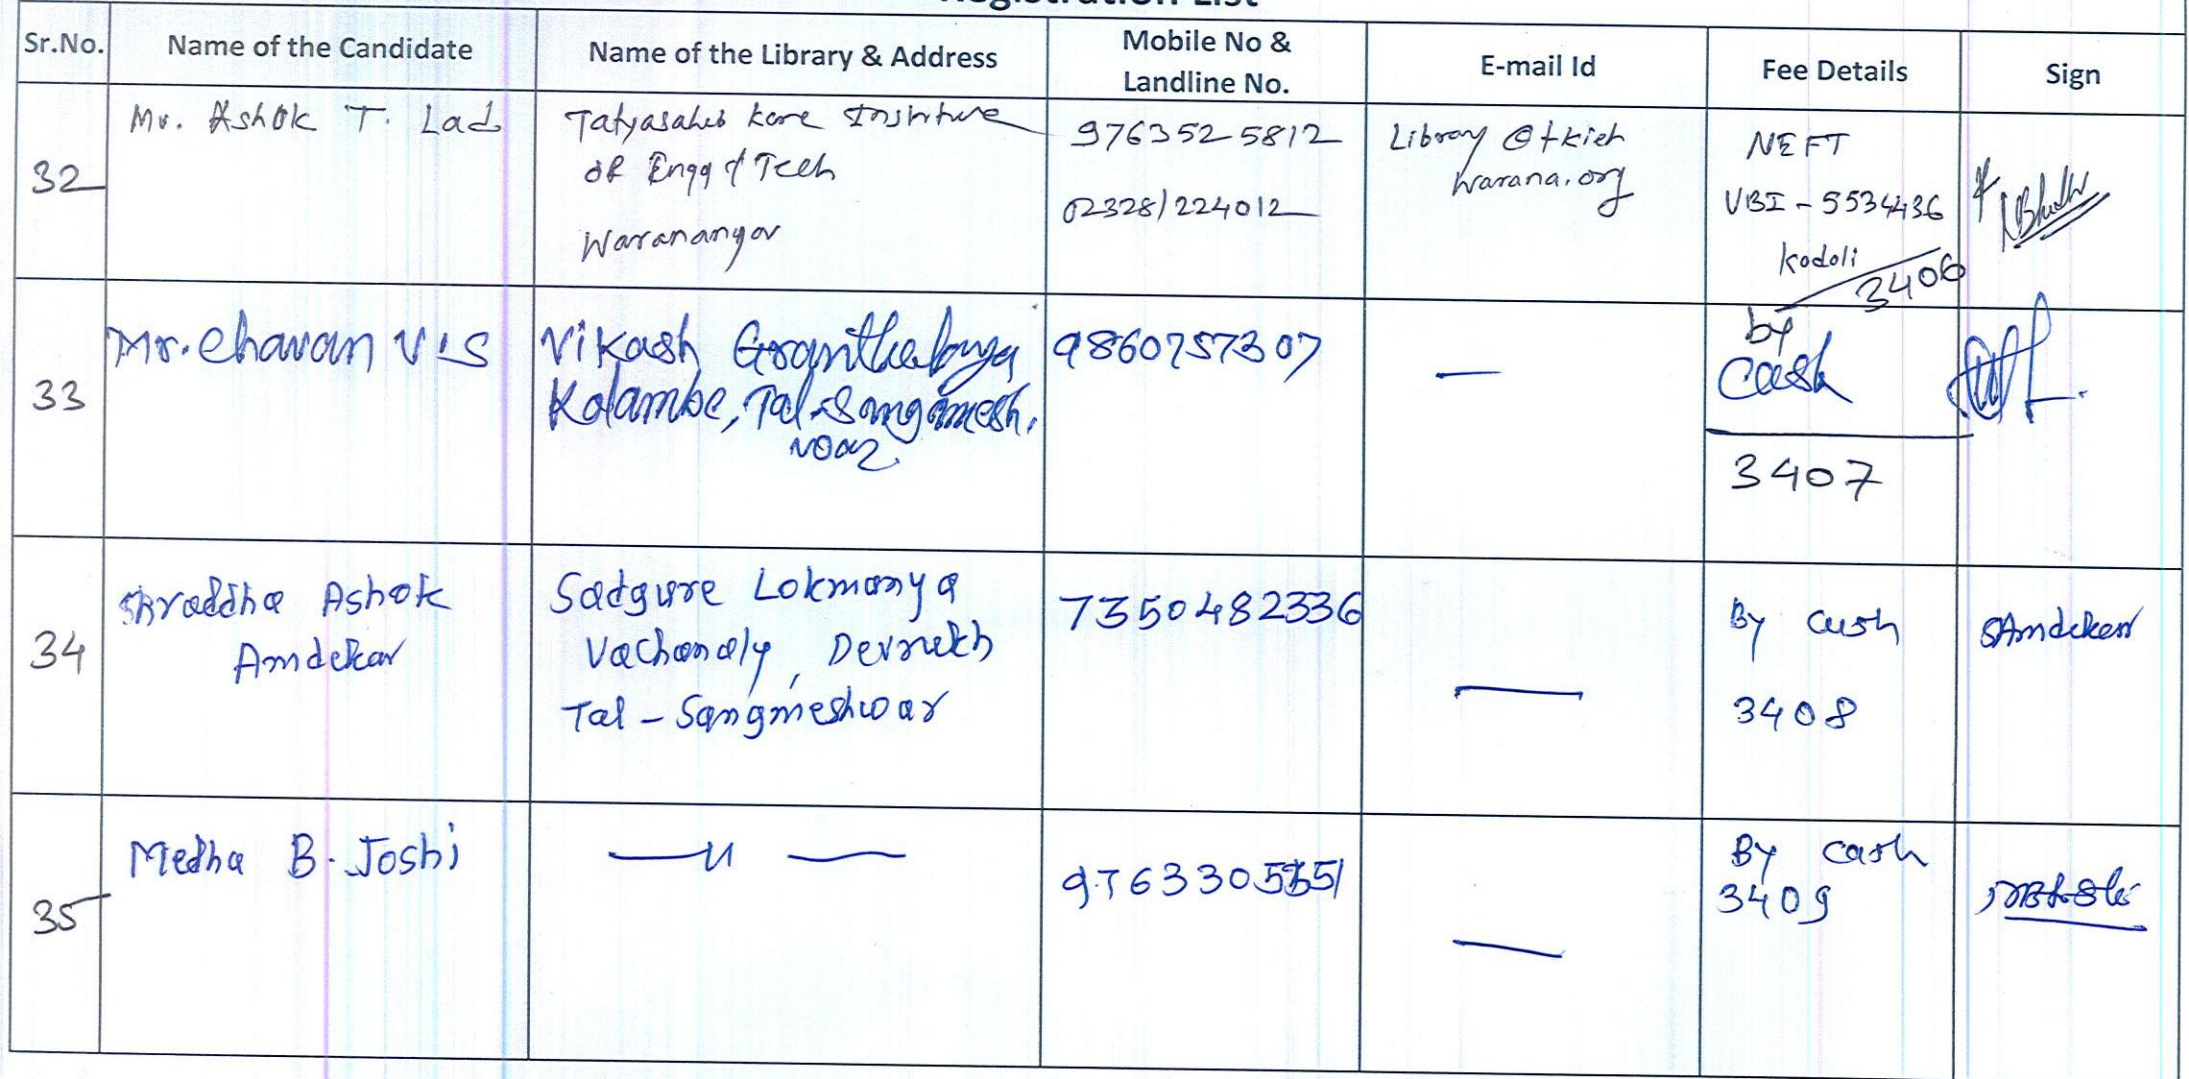 Registration List
Sr.No.
Name of the Candidate
Name of the Library & Address
Mobile No &
Landline No.
E-mail Id
Fee Details
Sign
32
Mr. Ashok T. Lad
Tatyasaheb Kore Institute
of Engg & Tech
Warananagar
9763525812
02328/224012
Library @tkiet
warana.org
NEFT
VBI - 5534436
Kodoli
3406
33
Mr. Chavan V.S
Vikash Granthalaya
Kolambe, Tal-Sangamesh.
war
9860757307
—
by
Cash
3407
34
Shraddha Ashok
Amdekar
Sadgure Lokmanya
Vachanaly, Devrukh
Tal - Sangmeshwar
7350482336
—
By cash
3408
SAmdekar
35
Medha B. Joshi
— 〃 —
—
By cash
3409